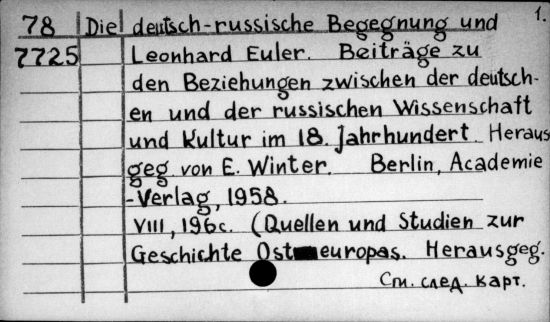 1.
78 Die deutsch-russische Begegnung und
7725 Leonhard Euler. Beiträge zu
den Beziehungen zwischen der deutsch-
en und der russischen Wissenschaft
und Kultur im 18. Jahrhundert. Heraus
geg von E. Winter. Berlin, Academie
-Verlag, 1958.
VIII, 196c. (Quellen und Studien zur
Geschichte Osteuropas. Herausgeg.
См. след. карт.